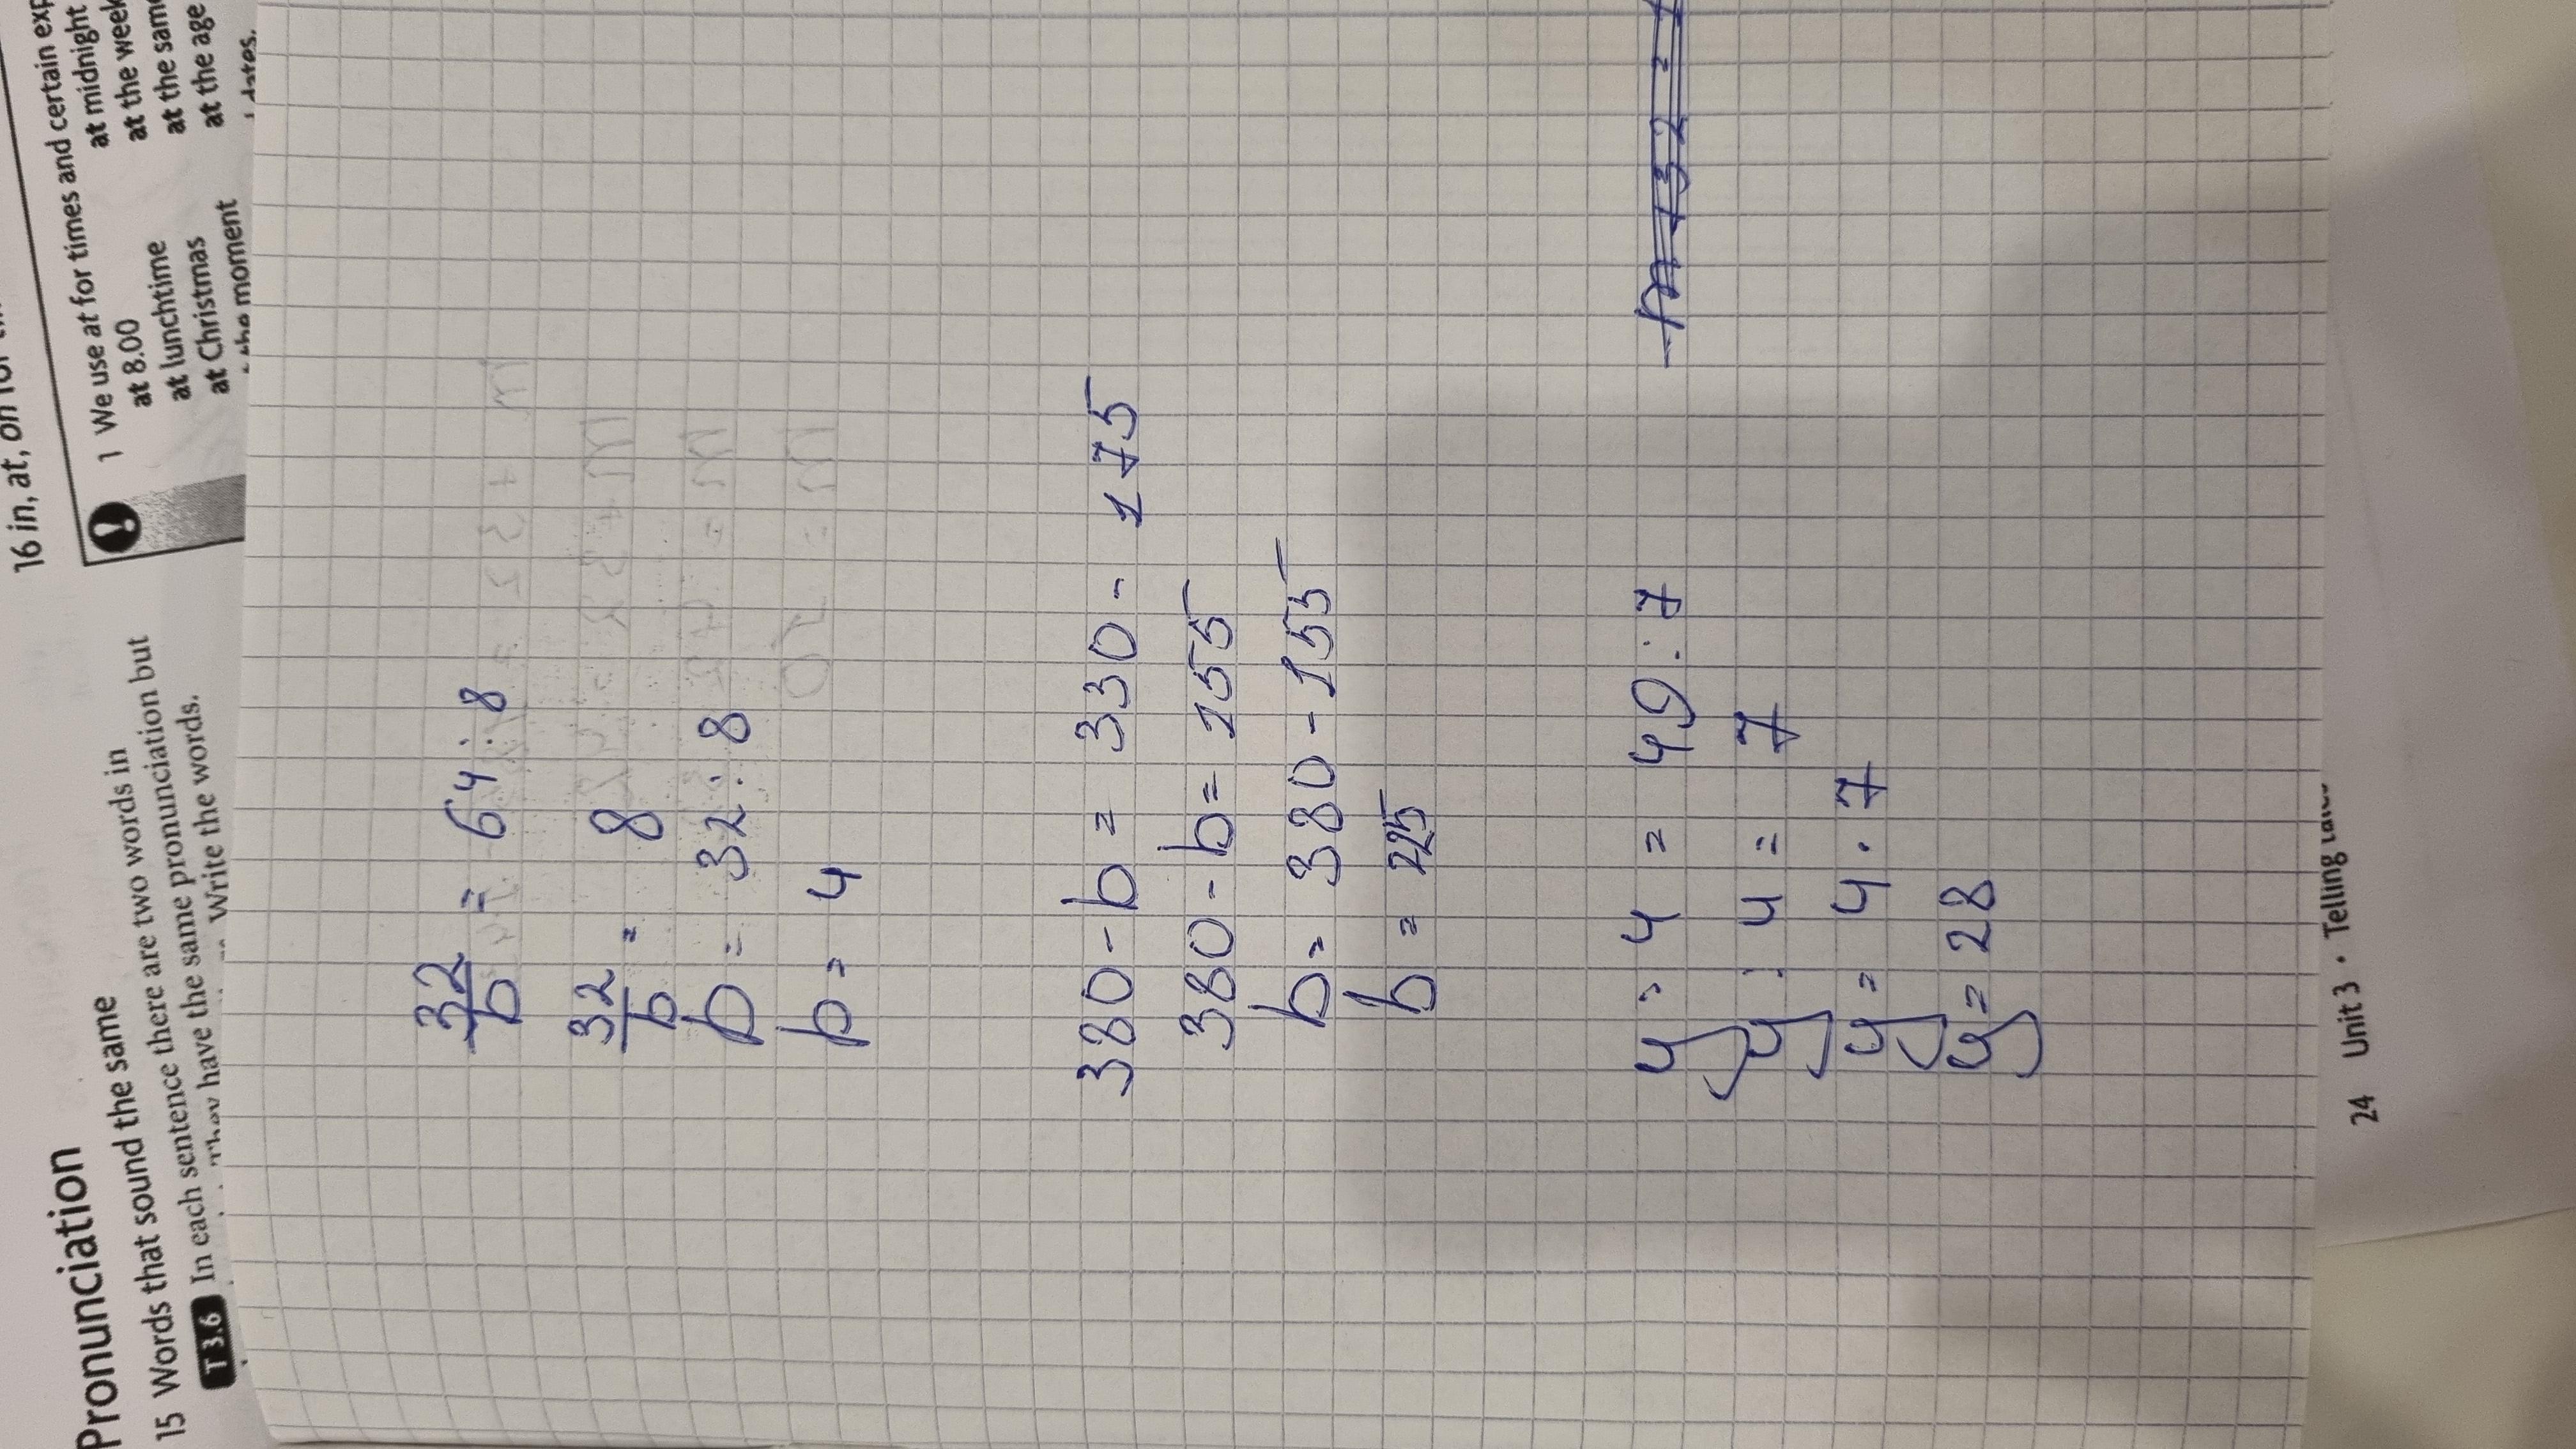 16 in, at, on
1 We use at for times and certain exp
at 8.00 at midnight
at lunchtime at the week
at Christmas at the same
the moment at the age
dates.
Pronunciation
15 Words that sound the same
T 3.6 In each sentence there are two words in
have the same pronunciation but
Write the words.
32/b = 64 : 8
32/b = 8
b = 32 : 8
b = 4
380 - b = 330 - 175
380 - b = 155
b = 380 - 155
b = 225
y : 4 = 49 : 7
y : 4 = 7
y = 4 · 7
y = 28
24 Unit 3 · Telling